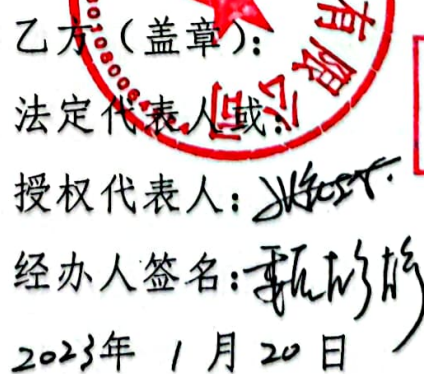 乙方（盖章）：
有限公司
法定代表人或：
授权代表人：
经办人签名：
2023年 1 月 20 日